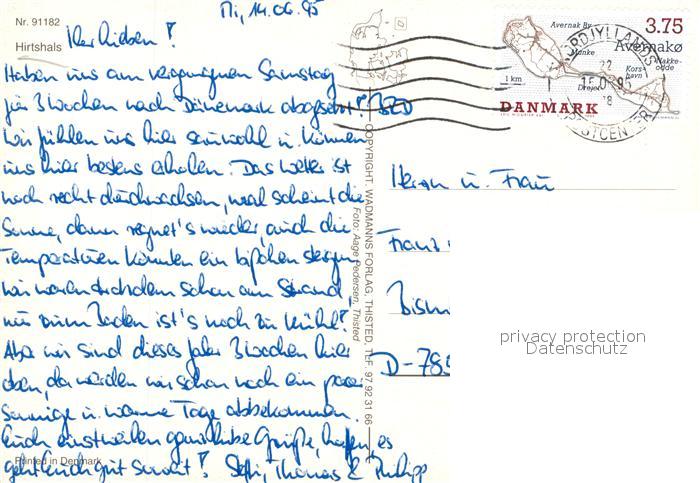 Nr. 91182
Hirtshals
Mi, 14.06.95
Ihr Lieben!
Haben uns am vergangenen Samstag
für 3 Wochen nach Dänemark abgesetzt!
Wir fühlen uns hier sauwohl u. können
uns hier bestens erholen. Das Wetter ist
noch recht durchwachsen, mal scheint die
Sonne, dann regnet's wieder, auch die
Temperaturen könnten ein bißchen steigen,
wir waren trotzdem schon am Strand,
nur zum Baden ist's noch zu kühl!
Aber wir sind dieses Jahr 3 Wochen hier
oben, da werden wir schon noch ein paar
sonnige u. warme Tage abbekommen.
Euch einstweilen ganz liebe Grüße, hoffen, es
geht Euch gut soweit! Steffi, Thomas & Philipp
Printed in Denmark
COPYRIGHT. WADMANNS FORLAG, THISTED, TLF. 97 92 31 66
Foto: Aage Pedersen, Thisted
3.75
Avernakø
Avernak By
Munke
Korshavn
Drejet
1 km
DANMARK
NORDJYLLANDS
POSTCENTER
BRD
Herrn u. Frau
Franz
Bism
D-78
privacy protection
Datenschutz